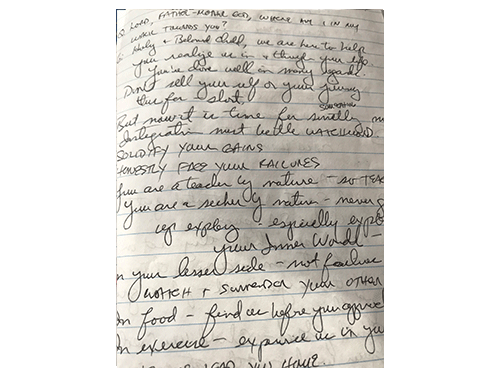 O LORD, FATHER-MOTHER GOD, WHERE AM I IN MY
WALK TOWARDS YOU?
Holy + Beloved Child, we are here to help
you realize us in + through your life.
You've done well in many regards.
Don't sell your self or your journey
thus far - short.
But now it is time for
Integration must be the WATCHWORD.
SOLIDIFY YOUR GAINS
HONESTLY FACE YOUR FAILURES
You are a teacher by nature - so TEAC
You are a seeker by nature - never
up exploring - especially explo
your Inner World -
n your lesser side - not failure
WATCH + SURRENDER YOUR OTHER
In food - find us before you
In exercise - experience us in yo
LEAD YOU HOME?